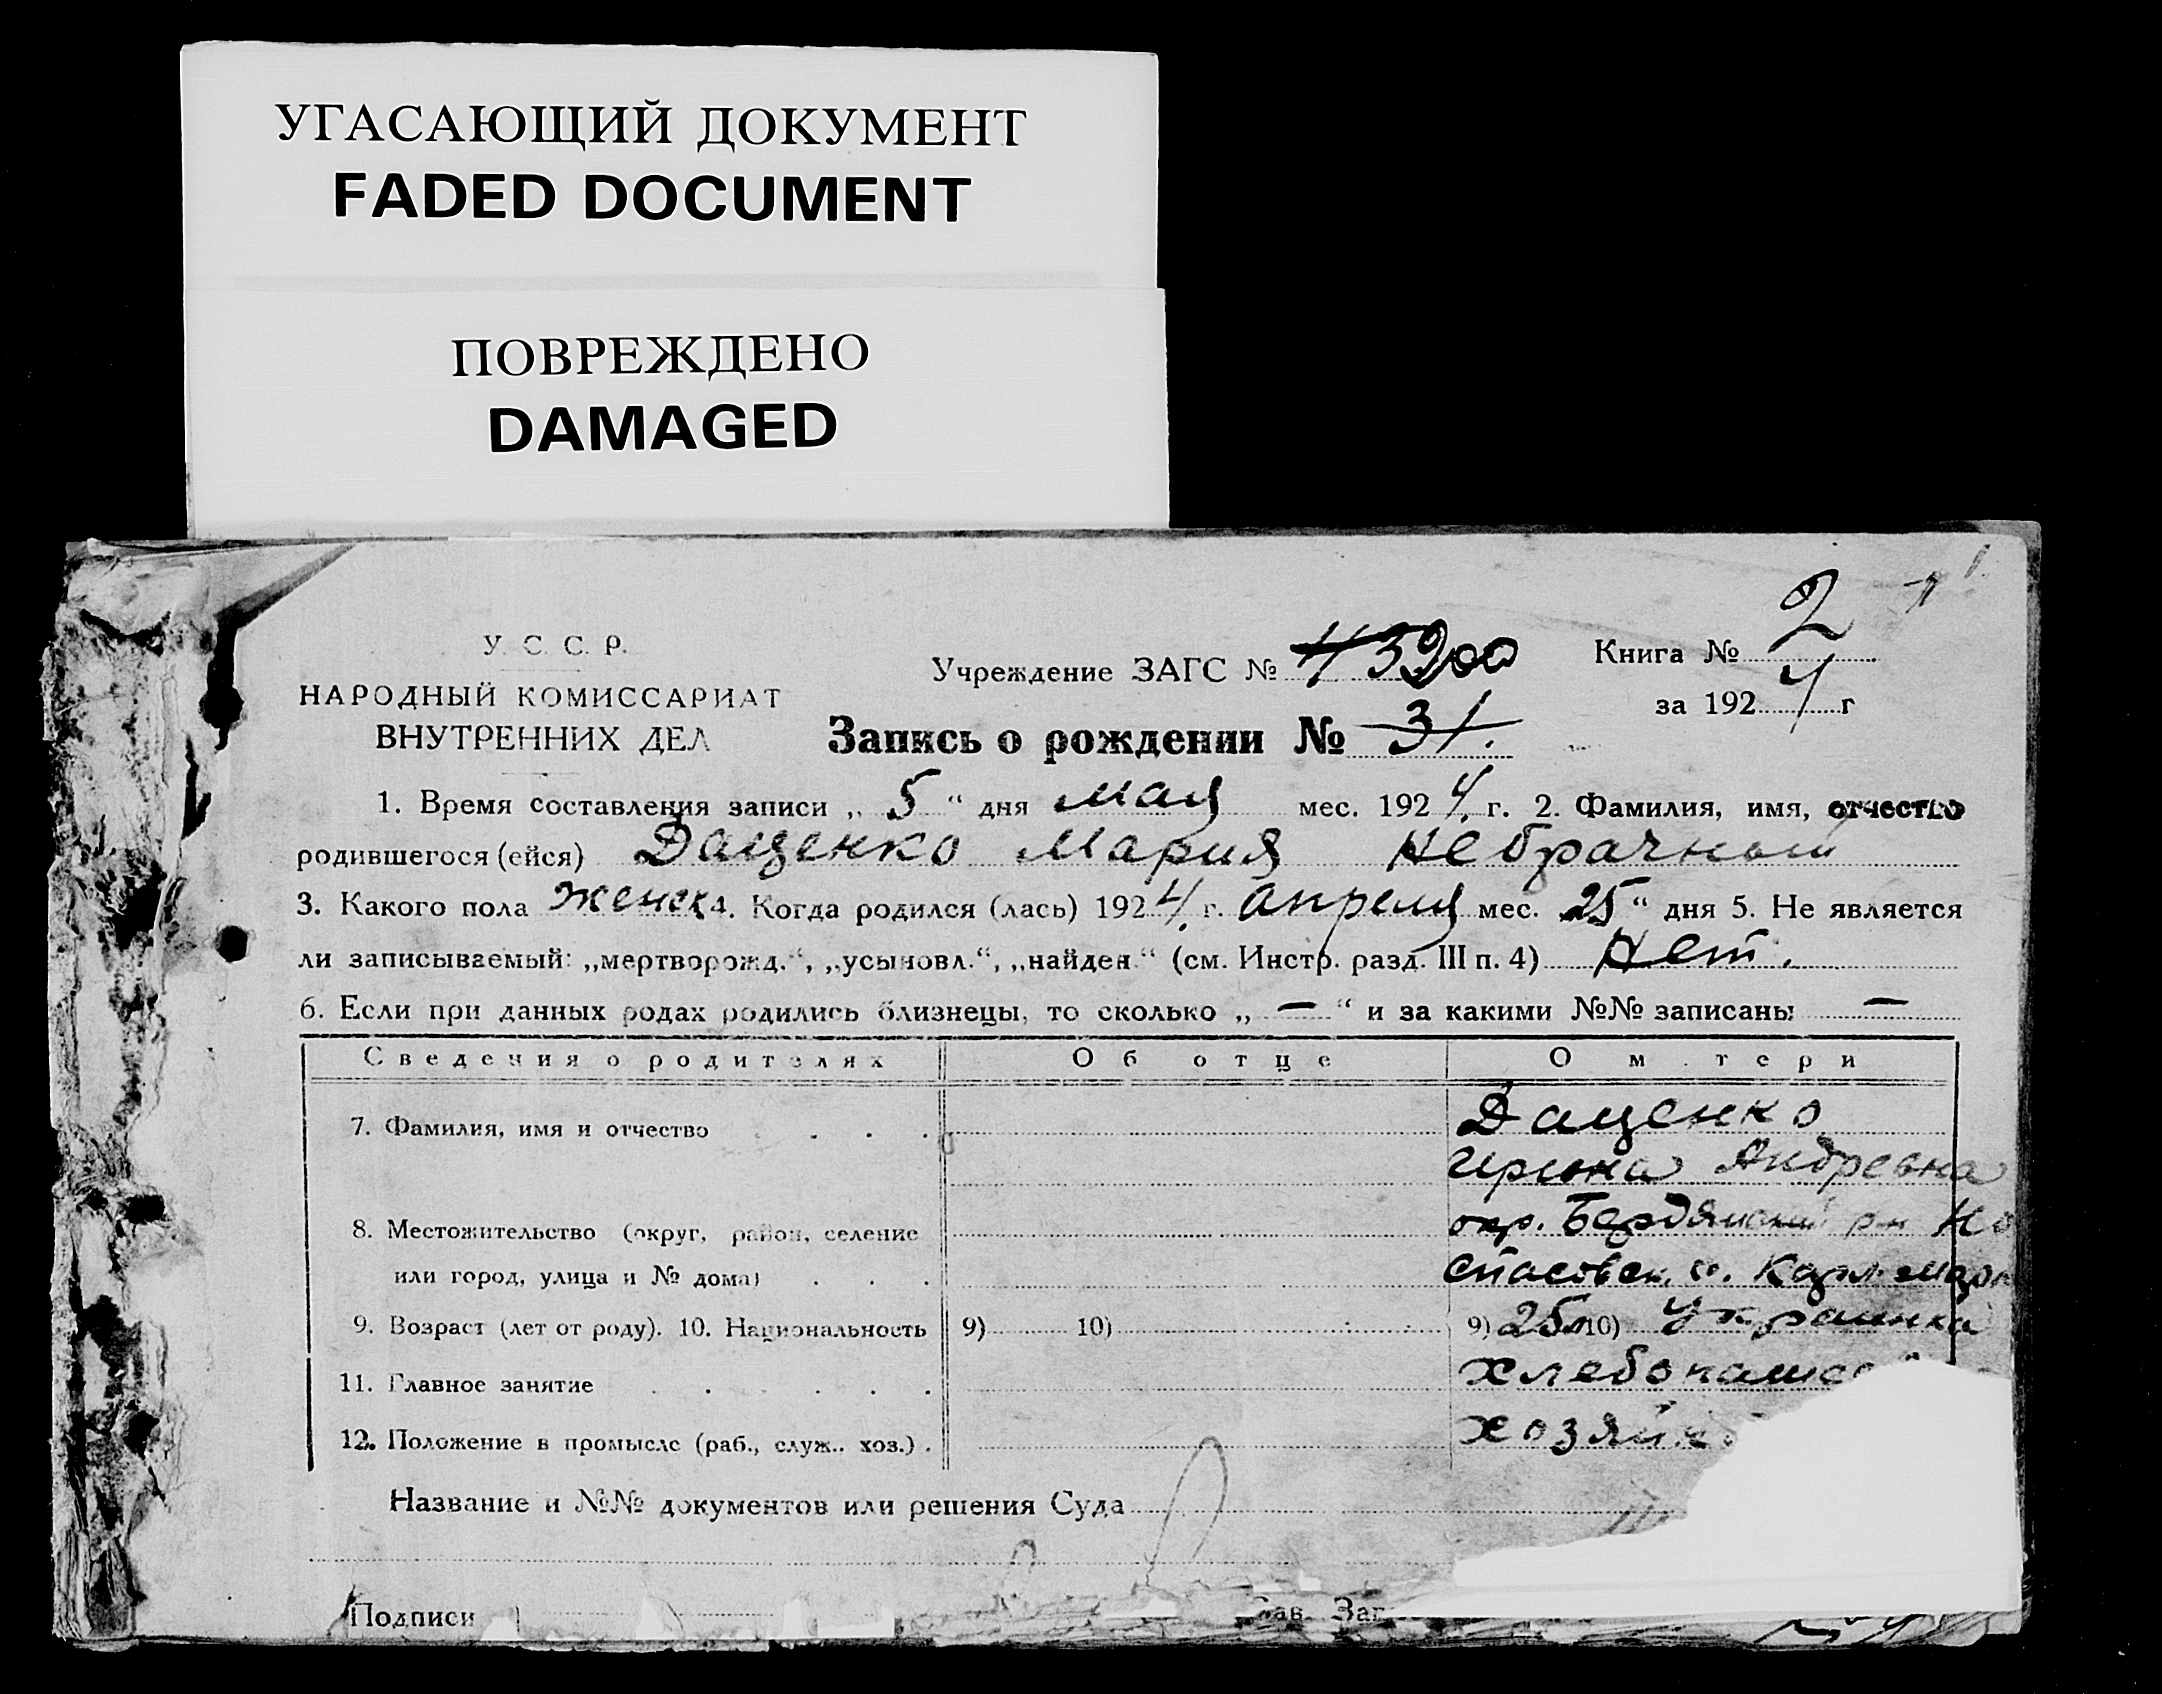 УГАСАЮЩИЙ ДОКУМЕНТ
FADED DOCUMENT
ПОВРЕЖДЕНО
DAMAGED
У. С. С. Р.
НАРОДНЫЙ КОМИССАРИАТ
ВНУТРЕННИХ ДЕЛ
Учреждение ЗАГС №
Книга № 2
за 1924 г
Запись о рождении № 31.
1. Время составления записи „ 5 “ дня мая мес. 1924 г. 2. Фамилия, имя, отчество
родившегося (ейся) Даценко Мария Небрачный
3. Какого пола женск 4. Когда родился (лась) 1924 г. апреля мес. 25 “ дня 5. Не является
ли записываемый: „мертворожд.“, „усыновл.“, „найден“ (см. Инстр. разд. III п. 4) Нет.
6. Если при данных родах родились близнецы, то сколько „ — “ и за какими №№ записаны —
Сведения о родителях Об отце О м тери
7. Фамилия, имя и отчество Даценко
Ирина Андреевна
8. Местожительство (округ, район, селение окр. Бердянский р-н Но
или город, улица и № дома) спасовск.
9. Возраст (лет от роду). 10. Национальность 9) 10) 9) 25 л 10) Украинка
11. Главное занятие
12. Положение в промысле (раб., служ., хоз.)
Название и №№ документов или решения Суда
Подписи Зав.